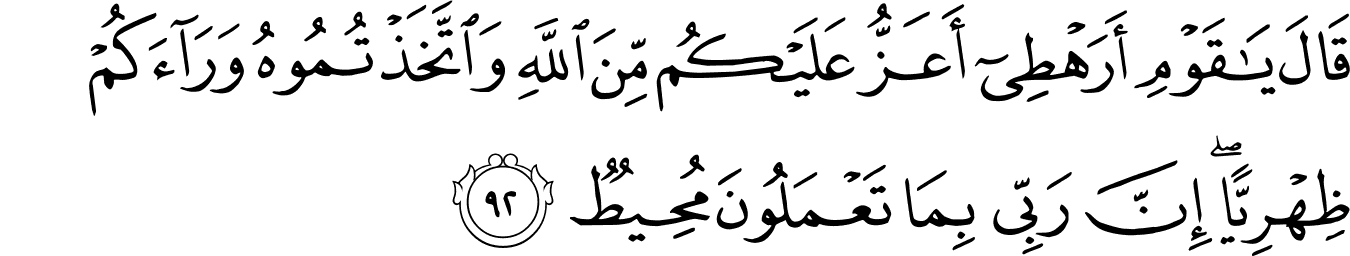 قَالَ يَـٰقَوْمِ أَرَهْطِىٓ أَعَزُّ عَلَيْكُم مِّنَ ٱللَّهِ وَٱتَّخَذْتُمُوهُ وَرَآءَكُمْ
ظِهْرِيًّا ۖ إِنَّ رَبِّى بِمَا تَعْمَلُونَ مُحِيطٌ ٩٢